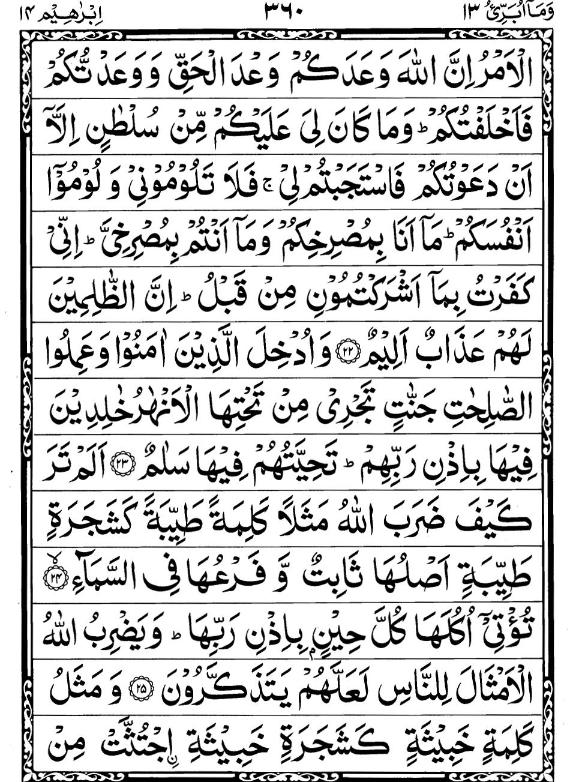 وَمَآ اُبَرِّئُ ١٣ ٣٦٠ اِبْرٰهِيْم ١٤
الْاَمْرُ اِنَّ اللّٰهَ وَعَدَكُمْ وَعْدَ الْحَقِّ وَوَعَدْتُّكُمْ
فَاَخْلَفْتُكُمْ ؕ وَمَا كَانَ لِیَ عَلَيْكُمْ مِّنْ سُلْطٰنٍ اِلَّاۤ
اَنْ دَعَوْتُكُمْ فَاسْتَجَبْتُمْ لِیْ ۚ فَلَا تَلُوْمُوْنِیْ وَ لُوْمُوْۤا
اَنْفُسَكُمْ ؕ مَاۤ اَنَا بِمُصْرِخِكُمْ وَمَاۤ اَنْتُمْ بِمُصْرِخِیَّ ؕ اِنِّیْ
كَفَرْتُ بِمَاۤ اَشْرَكْتُمُوْنِ مِنْ قَبْلُ ؕ اِنَّ الظّٰلِمِيْنَ
لَهُمْ عَذَابٌ اَلِيْمٌ ٢٢ وَاُدْخِلَ الَّذِيْنَ اٰمَنُوْا وَعَمِلُوا
الصّٰلِحٰتِ جَنّٰتٍ تَجْرِیْ مِنْ تَحْتِهَا الْاَنْهٰرُ خٰلِدِيْنَ
فِيْهَا بِاِذْنِ رَبِّهِمْ ؕ تَحِيَّتُهُمْ فِيْهَا سَلٰمٌ ٢٣ اَلَمْ تَرَ
كَيْفَ ضَرَبَ اللّٰهُ مَثَلًا كَلِمَةً طَيِّبَةً كَشَجَرَةٍ
طَيِّبَةٍ اَصْلُهَا ثَابِتٌ وَّ فَرْعُهَا فِی السَّمَآءِ ۙ ٢٤
تُؤْتِیْۤ اُكُلَهَا كُلَّ حِيْنٍۭ بِاِذْنِ رَبِّهَا ؕ وَيَضْرِبُ اللّٰهُ
الْاَمْثَالَ لِلنَّاسِ لَعَلَّهُمْ يَتَذَكَّرُوْنَ ٢٥ وَ مَثَلُ
كَلِمَةٍ خَبِيْثَةٍ كَشَجَرَةٍ خَبِيْثَةِ ۟اجْتُثَّتْ مِنْ